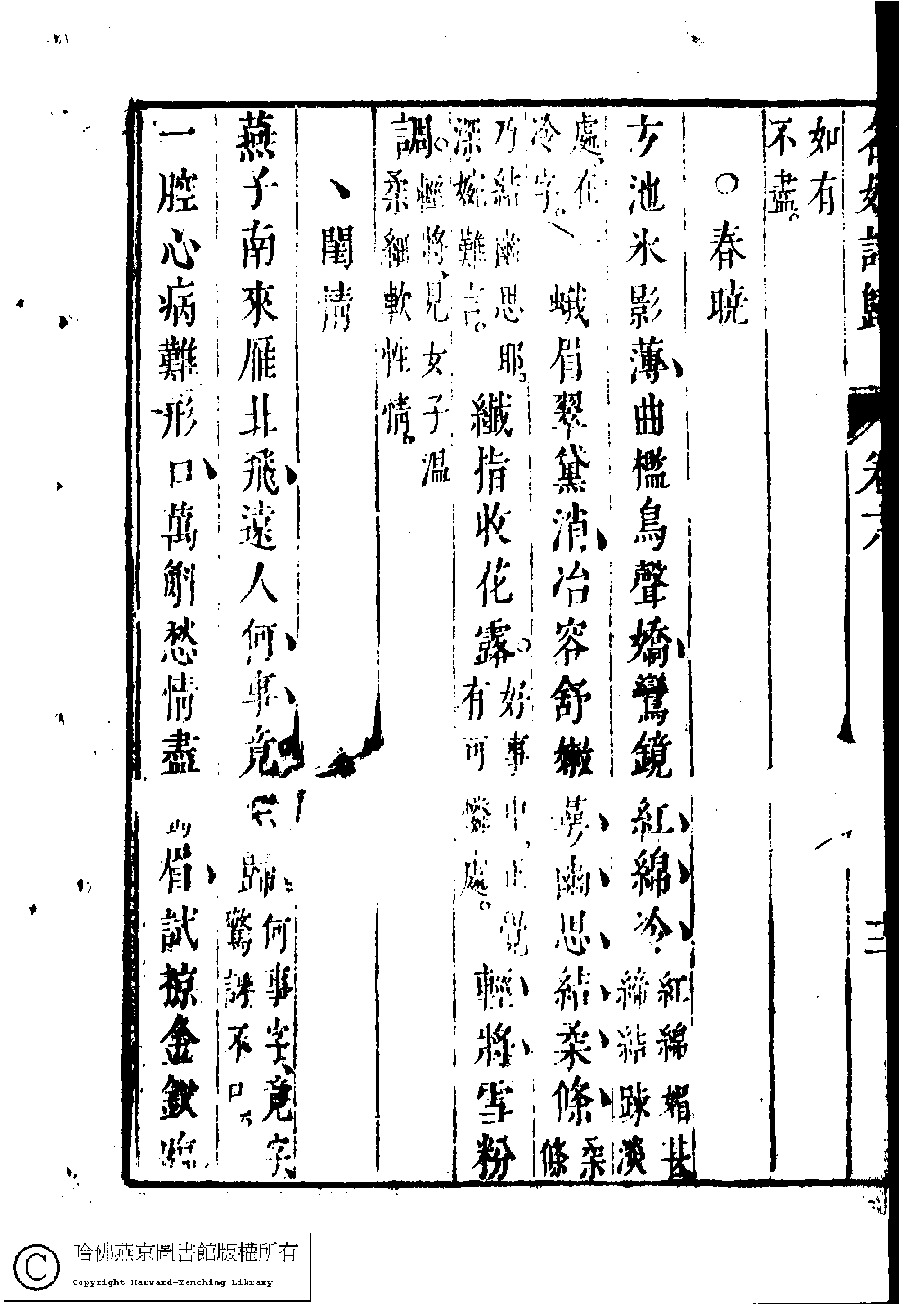 名媛詩歸 卷六 三
如有
不盡。
○春曉
方池氷影薄曲檻鳥聲嬌鸞鏡紅綿冷紅綿媚甚
綿結踈淡
處在
冷字。蛾眉翠黛消冶容舒嫩萼幽思結柔條柔
條
乃結幽思耶。
深婉難言。纎指收花露。好事中正覺
有可憐處。輕將雪粉
調。輕將見女子温
柔細軟性情。
閨情
燕子南來雁北飛遠人何事竟 歸何事字竟字
驚訝不
一腔心病難形口萬斛愁情盡 眉試掠金釵臨
哈佛燕京圖書館版權所有
Copyright Harvard-Yenching Library